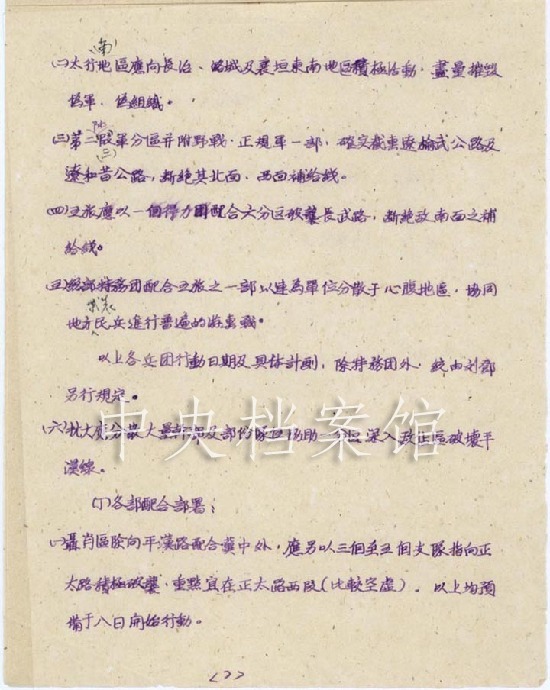 (南)
㈡太行地區應向長治、潞城及襄垣東南地區積極活動，盡量摧毀
偽軍、偽組織。
㈢第二軍分區并附野戰、正規軍一部，確实截击遼榆武公路及
(三)
遼和昔公路，断絕其北面、西面補給綫。
㈣五旅應以一個得力團配合六分区破襲長武路，断絕敌南面之補
給綫。
㈤特務团配合五旅之一部以連為單位分散于心腹地區，協同
地方民兵進行普遍的游击戰。
以上各兵团行動日期及具体計劃，除特務团外，統由刘鄧
另行規定。
㈥抗大應分散大量幹部及部份隊伍協助一分區深入敌占區破壞平
漢綫。
(丁)各部配合部署：
㈠聶肖區除向平漢路配合冀中外，應另以三個至五個支隊指向正
太路積極破襲，重點宜在正太路西段(比較空虛)。以上均預
備于八日開始行動。
中央档案馆